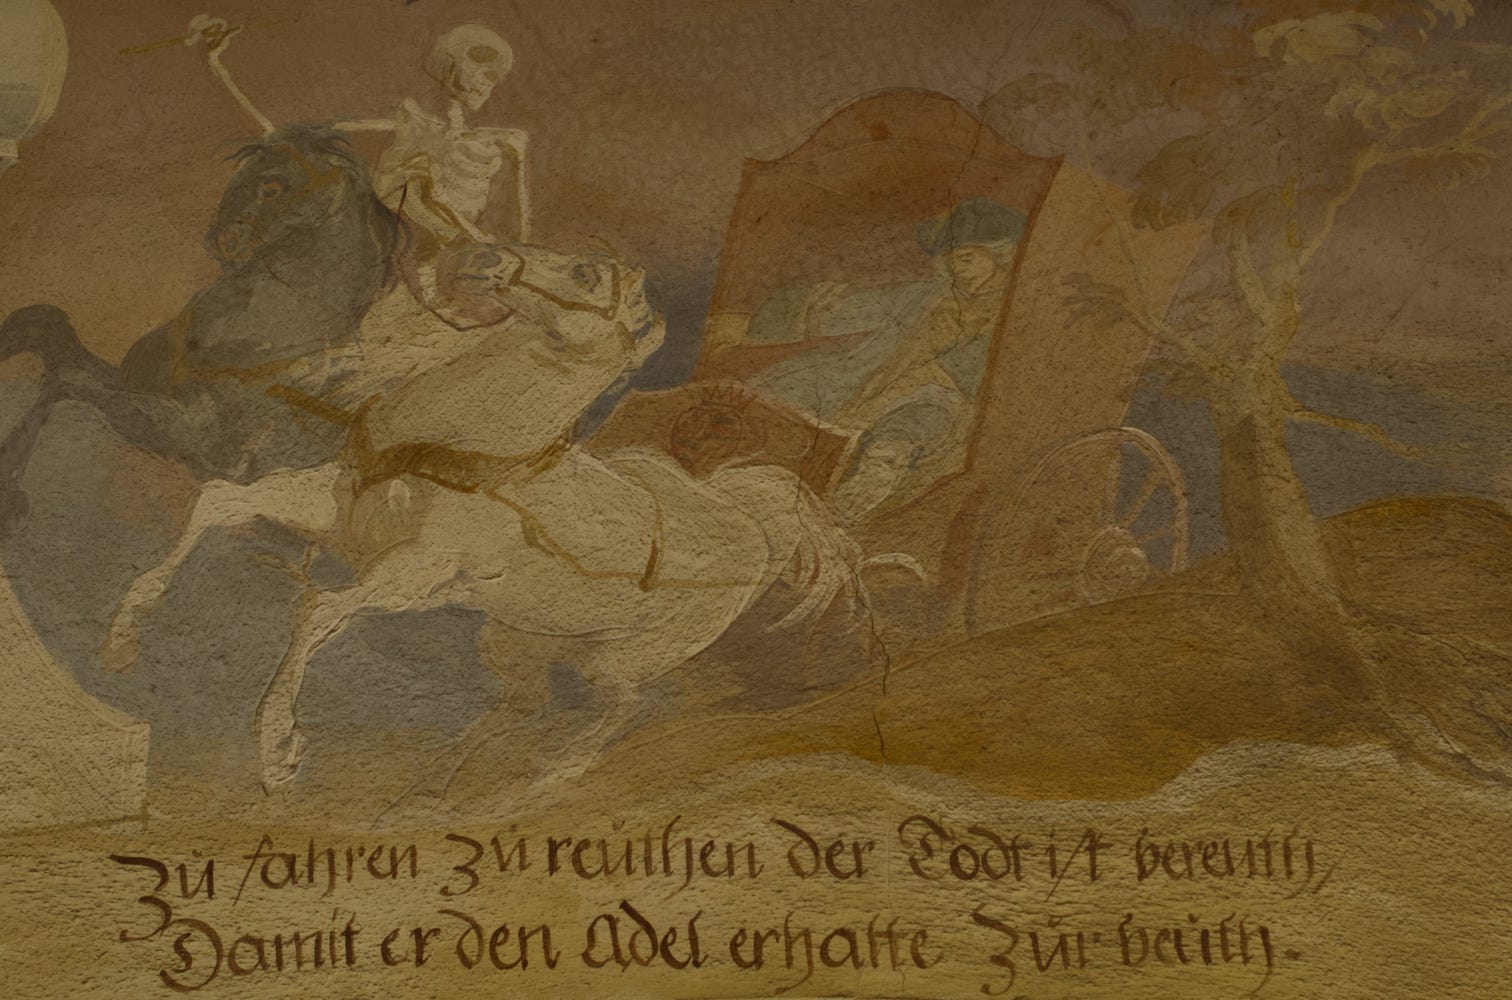 Zů fahren Zů reůthen der Todt ist bereuth,
Damit er den Adel erhatte Zůr beůth.